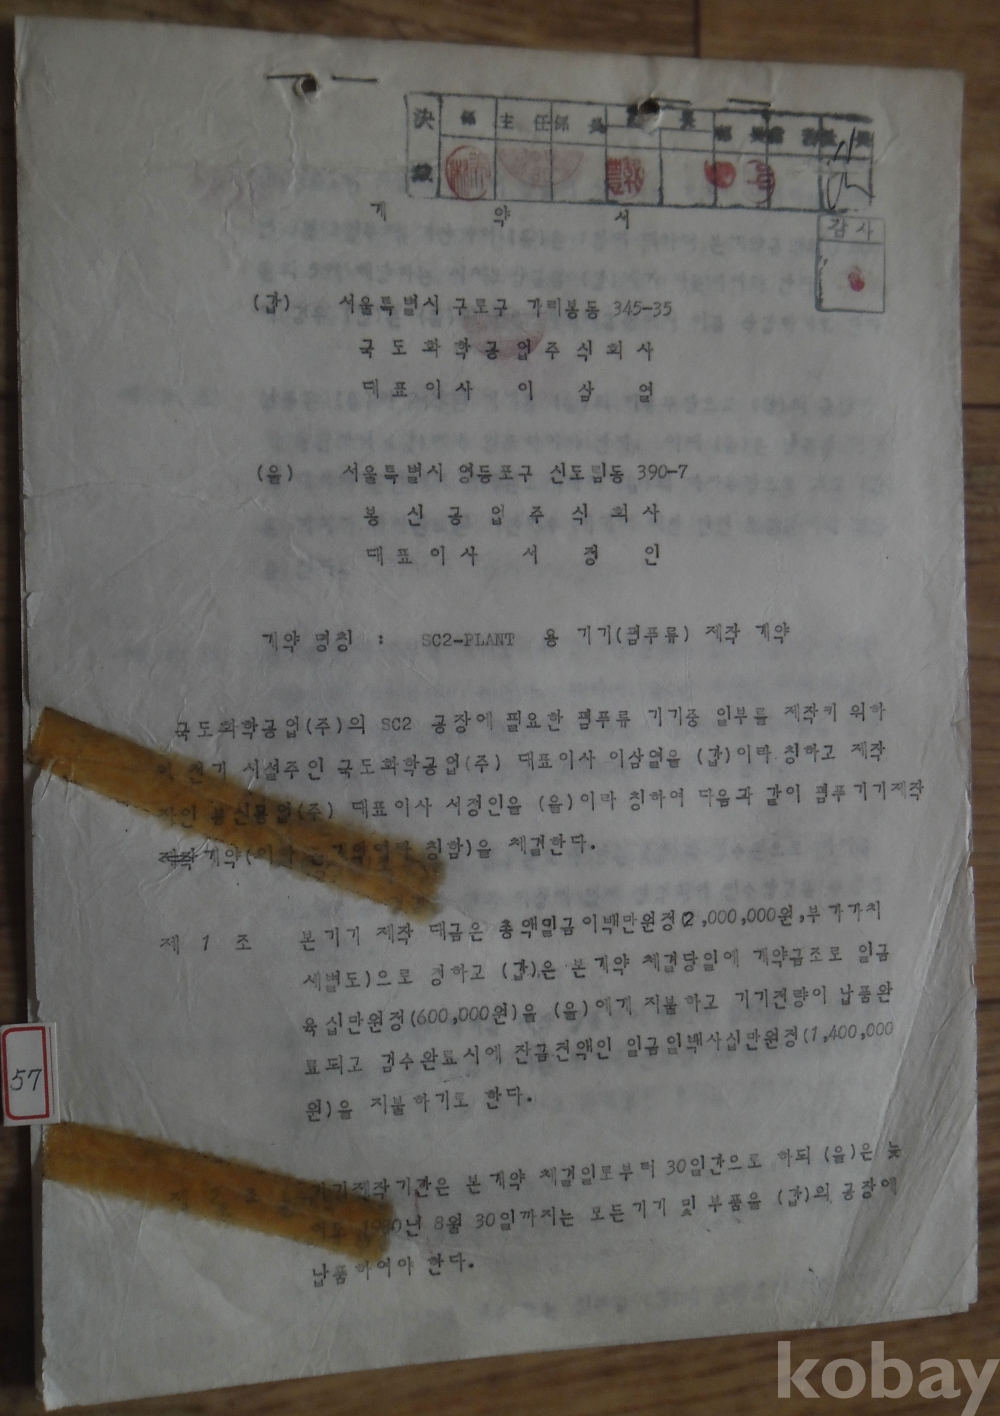 決 係 主任 係長 課長 部長
裁
계 약 서
감사
(갑) 서울특별시 구로구 가리봉동 345-35
국도화학공업주식회사
대표이사 이 삼 열
(을) 서울특별시 영등포구 신도림동 390-7
봉신공업주식회사
대표이사 서 정 인
계약 명칭 : SC2-PLANT 용 기기(펌푸류) 제작 계약
국도화학공업(주)의 SC2 공장에 필요한 펌푸류 기기중 일부를 제작키 위하
여 전기 시설주인 국도화학공업(주) 대표이사 이삼열을 (갑)이라 칭하고 제작
자인 봉신공업(주) 대표이사 서정인을 (을)이라 칭하여 다음과 같이 펌푸기기제작
계약(이하 본계약이라 칭함)을 체결한다.
제 1 조 본기기 제작 대금은 총액일금이백만원정(2,000,000원,부가가치
세별도)으로 정하고 (갑)은 본계약 체결당일에 계약금조로 일금
육십만원정(600,000원)을 (을)에게 지불하고 기기전량이 납품완
료되고 검수완료시에 잔금전액인 일금일백사십만원정(1,400,000
원)을 지불하기로 한다.
제 2 조 본기기제작기간은 본계약 체결일로부터 30일간으로 하되 (을)은 늦
어도 1980년 8월 30일까지는 모든기기 및 부품을 (갑)의 공장에
납품하여야 한다.
57
kobay